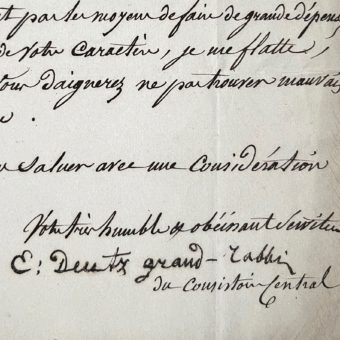 t pas les moyens de faire de grande dépens
de votre Caractère, je me flatte,
vous daignerez ne pas trouver mauvai
e.
saluer avec une Considération
Votre très humble & obéissant Servite
E: Deutz grand-rabbin
du Consistoire Central